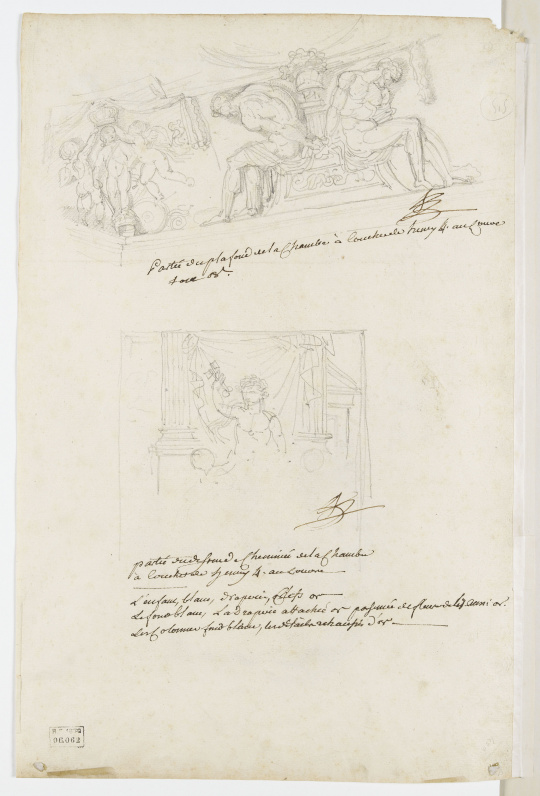 315
Partie du plafond de la Chambre à Coucher de henry 4. au Louvre
tout or.
partie du dessus de Cheminée de la Chambre
à Coucher de henry 4. au Louvre
L'enfant, blanc, draperie, or
Le fond blanc, La draperie attachée or parsemée de fleur de Lys aussi or.
Les Colonnes fond blanc, les détails rehaussés d'or
96.062